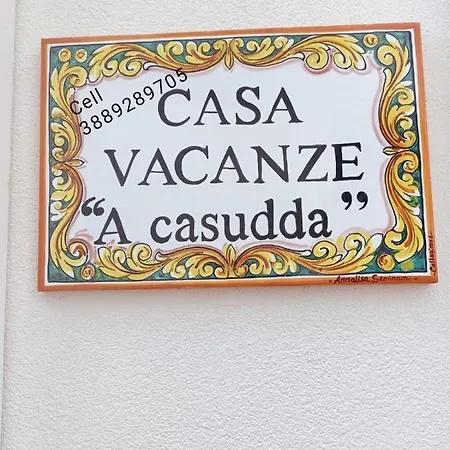 Cell
3889289705
CASA
VACANZE
“A casudda”
Annalisa Seminara